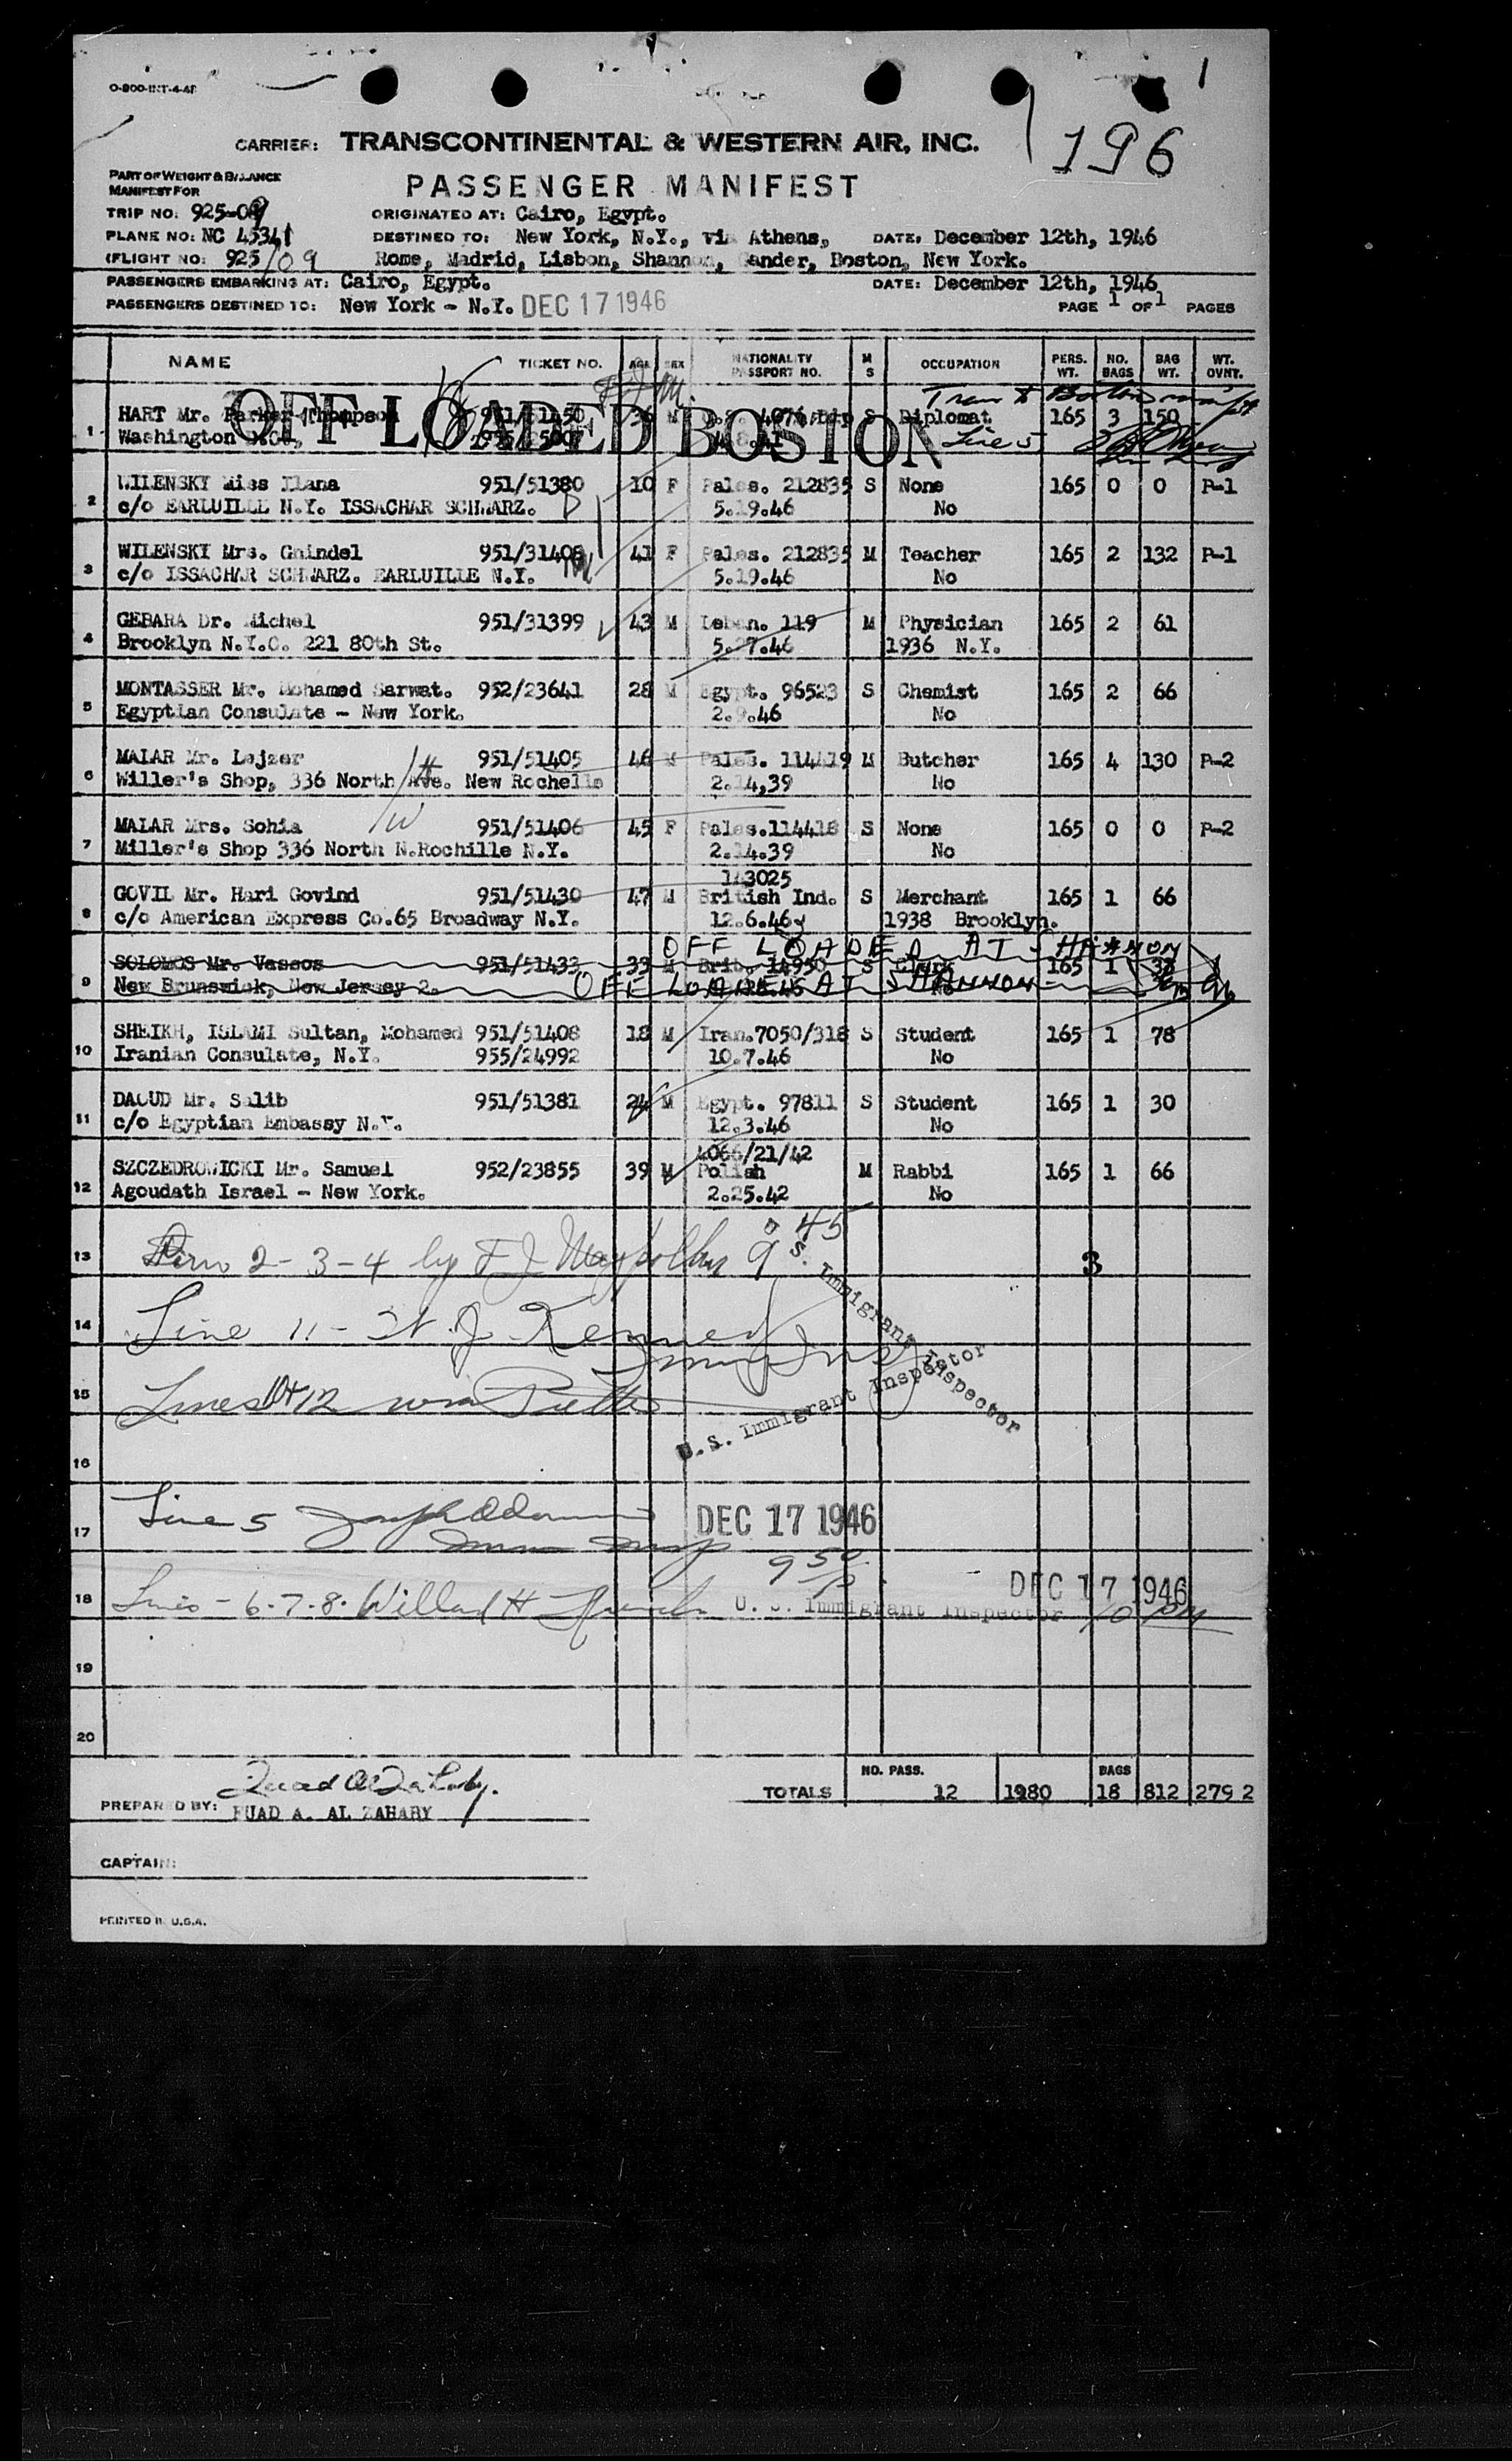 O-800-INT-4-46
1
CARRIER: TRANSCONTINENTAL & WESTERN AIR, INC. 196
PART OF WEIGHT & BALANCE
MANIFEST FOR
PASSENGER MANIFEST
TRIP NO: 925-09 ORIGINATED AT: Cairo, Egypt.
PLANE NO: NC 45341 DESTINED TO: New York, N.Y., via Athens, DATE: December 12th, 1946
(FLIGHT NO: 925/09 Rome, Madrid, Lisbon, Shannon, Gander, Boston, New York.
PASSENGERS EMBARKING AT: Cairo, Egypt. DATE: December 12th, 1946
PASSENGERS DESTINED TO: New York - N.Y. DEC 17 1946 PAGE 1 OF 1 PAGES
NAME TICKET NO. AGE SEX NATIONALITY PASSPORT NO. M S OCCUPATION PERS. WT. NO. BAGS BAG WT. WT. OVNT.
OFF LOADED BOSTON
1 HART Mr. Parker Thompson M S Diplomat 165 3 150
Washington
2 WILENSKY Miss Ilana 951/51380 10 F Pales. 212835 S None 165 0 0 P-1
c/o EARLUILLE N.Y. ISSACHAR SCHWARZ. 5.19.46 No
3 WILENSKY Mrs. Gnindel 951/31408 41 F Pales. 212835 M Teacher 165 2 132 P-1
c/o ISSACHAR SCHWARZ. EARLUILLE N.Y. 5.19.46 No
4 GEBARA Dr. Michel 951/31399 43 M Leban. 119 M Physician 165 2 61
Brooklyn N.Y.C. 221 80th St. 5.27.46 1936 N.Y.
5 MONTASSER Mr. Mohamed Sarwat. 952/23641 28 M Egypt. 96523 S Chemist 165 2 66
Egyptian Consulate - New York. 2.9.46 No
6 MALAR Mr. Lejzer 951/51405 46 M Pales. 114419 M Butcher 165 4 130 P-2
Willer's Shop, 336 North Ave. New Rochelle 2.14,39 No
7 MALAR Mrs. Sohia 951/51406 45 F Pales.114418 S None 165 0 0 P-2
Miller's Shop 336 North N.Rochille N.Y. 2.14.39 No
143025
8 GOVIL Mr. Hari Govind 951/51430 47 M British Ind. S Merchant 165 1 66
c/o American Express Co.65 Broadway N.Y. 12.6.46 1938 Brooklyn.
OFF LOADED AT SHANNON
9 SOLOMOS Mr. Vassos 951/51433 33 M Brit. 14950 S Clerk 165 1
New Brunswick, New Jersey 2. OFF LOADED AT SHANNON No
10 SHEIKH, ISLAMI Sultan, Mohamed 951/51408 18 M Iran.7050/318 S Student 165 1 78
Iranian Consulate, N.Y. 955/24992 10.7.46 No
11 DAOUD Mr. Salib 951/51381 24 M Egypt. 97811 S Student 165 1 30
c/o Egyptian Embassy N.Y. 12.3.46 No
4066/21/42
12 SZCZEDROWICKI Mr. Samuel 952/23855 39 M Polish M Rabbi 165 1 66
Agoudath Israel - New York. 2.25.42 No
13 2-3-4 by F J 9 45 3
U.S. Immigrant Inspector
14 Line 11 - J. Kennedy
15 Lines 10 + 12
U.S. Immigrant Inspector
16
17 Line 5 DEC 17 1946
9 50
18 Lines - 6-7-8. Willard H U.S. Immigrant Inspector DEC 17 1946 10 PM
19
20
TOTALS NO. PASS. 12 1980 BAGS 18 812 279 2
PREPARED BY: FUAD A. AL ZAHABY
CAPTAIN:
PRINTED IN U.S.A.